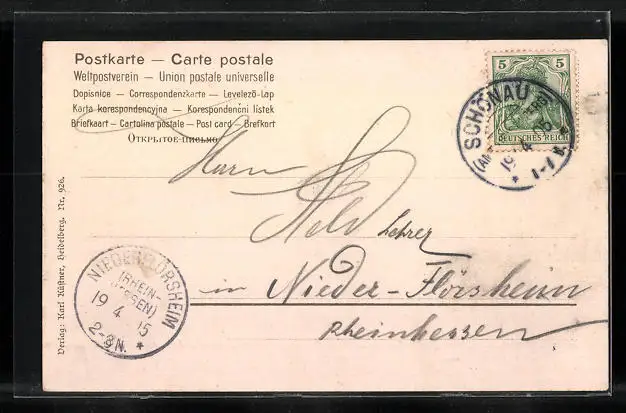 Postkarte — Carte postale
Weltpostverein — Union postale universelle
Dopisnice — Correspondenzkarte — Levelező-Lap
Karta korespondencyjna — Korespondenční listek
Briefkaart — Cartolina postale — Post card — Brefkort
Открытое письмо
5 5
DEUTSCHES REICH
SCHÖNAU
19 4 05
1-1 N.
Herrn
Held Lehrer
in Nieder-Flörsheim
Rheinhessen
NIEDERFLÖRSHEIM
(RHEIN-
HESSEN)
19 4 05
2-3N.
Verlag: Karl Kästner, Heidelberg. Nr. 926.